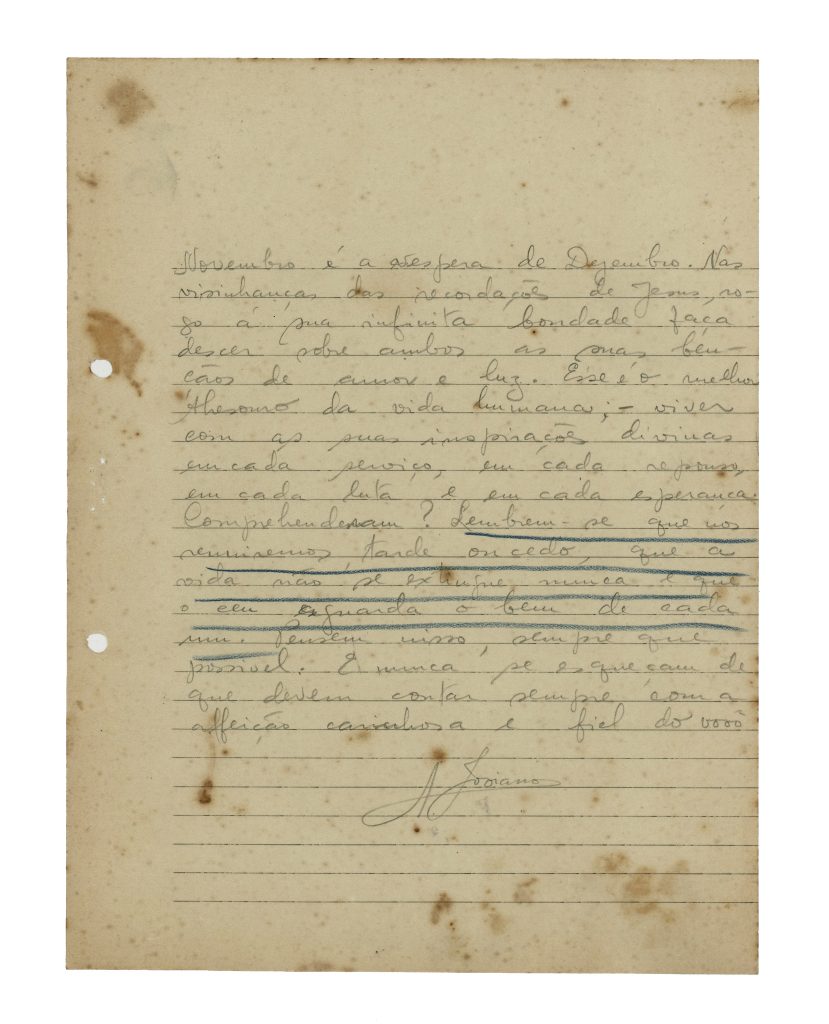 Novembro é a vespera de Dezembro. Nas
visinhanças das recordações de Jesus, ro-
go á sua infinita bondade faça
descer sobre ambos as suas ben-
çãos de amor e luz. Esse é o melhor
thesouro da vida humana; - viver
com as suas inspirações divinas
em cada serviço, em cada repouso,
em cada luta e em cada esperança.
Comprehenderam? Lembrem-se que nos
reuniremos, tarde ou cedo, que a
vida não se extingue nunca e que
o ceu guarda o bem de cada
um. Pensem nisso, sempre que
possivel. E nunca se esqueçam de
que devem contar sempre com a
affeição carinhosa e fiel do vovô
A.